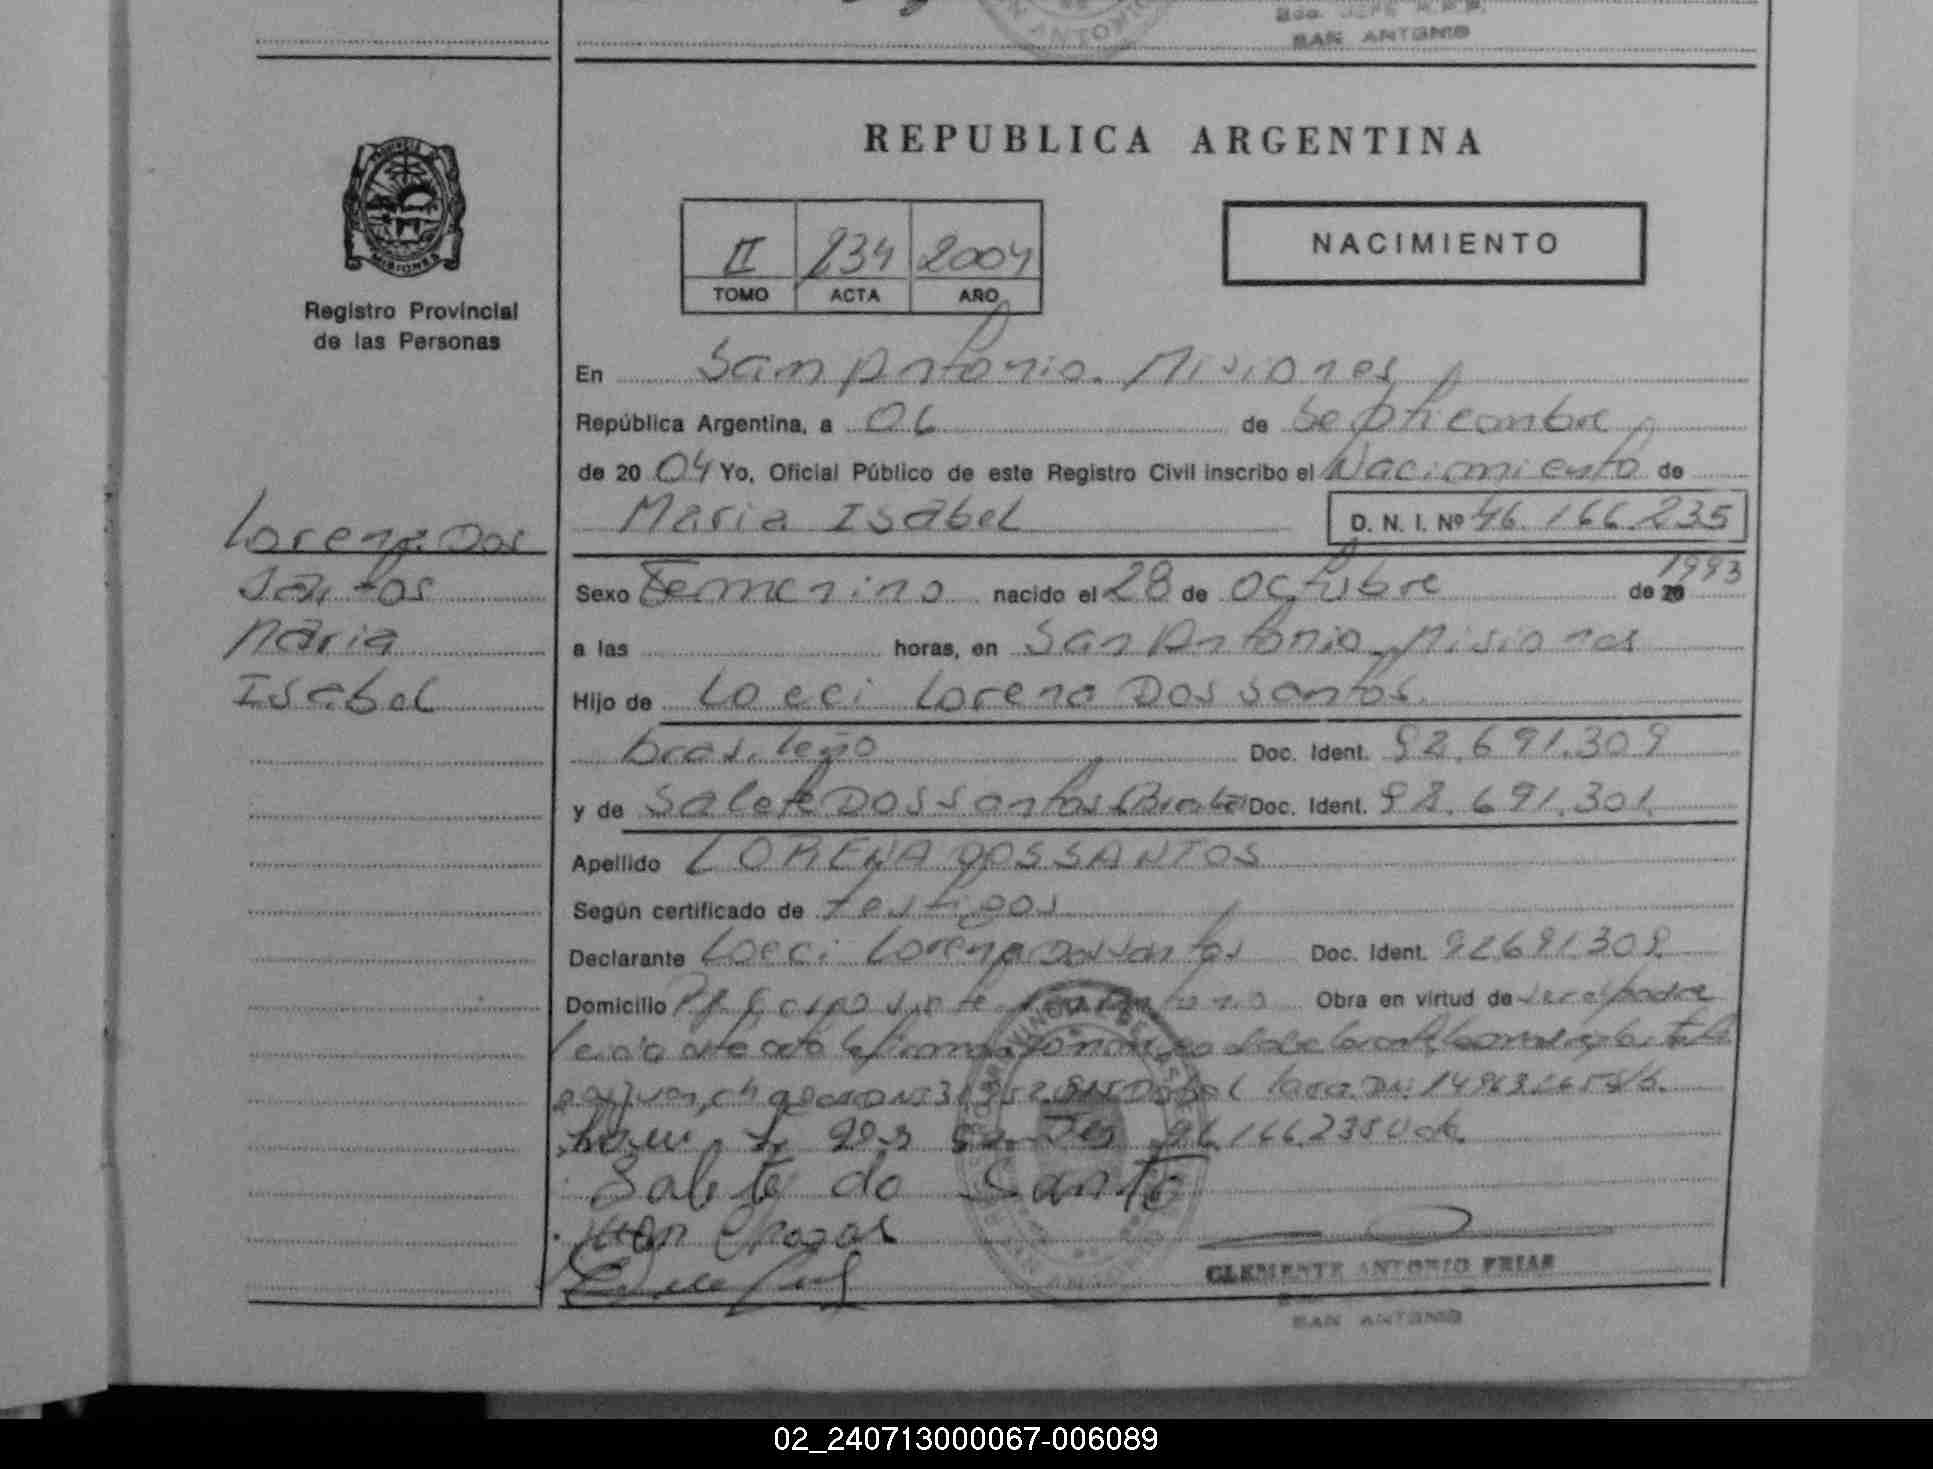 SAN ANTONIO
REPUBLICA ARGENTINA
II 234 2004
TOMO ACTA AÑO
NACIMIENTO
PROVINCIA DE
MISIONES
Registro Provincial
de las Personas
En San Antonio. Misiones
República Argentina, a 06 de Septiembre
de 20 04 Yo, Oficial Público de este Registro Civil inscribo el Nacimiento de
Maria Isabel D. N. I. Nº 46.166.235
Lorena Dos
Santos
Maria
Isabel
Sexo Femenino nacido el 28 de octubre de 20 1993
a las horas, en San Antonio, Misiones
Hijo de Loeci Lorena Dos santos.
brasileño Doc. Ident. 92.691.309
y de Salete Dos santos Doc. Ident. 92.691.301
Apellido LORENA DOS SANTOS
Según certificado de testigos
Declarante Loeci Lorena Dos santos Doc. Ident. 92691.309
Domicilio Obra en virtud de ser el padre
Salete do Santo
Juan Chagas
CLEMENTE ANTONIO FRIAS
SAN ANTONIO
02_240713000067-006089